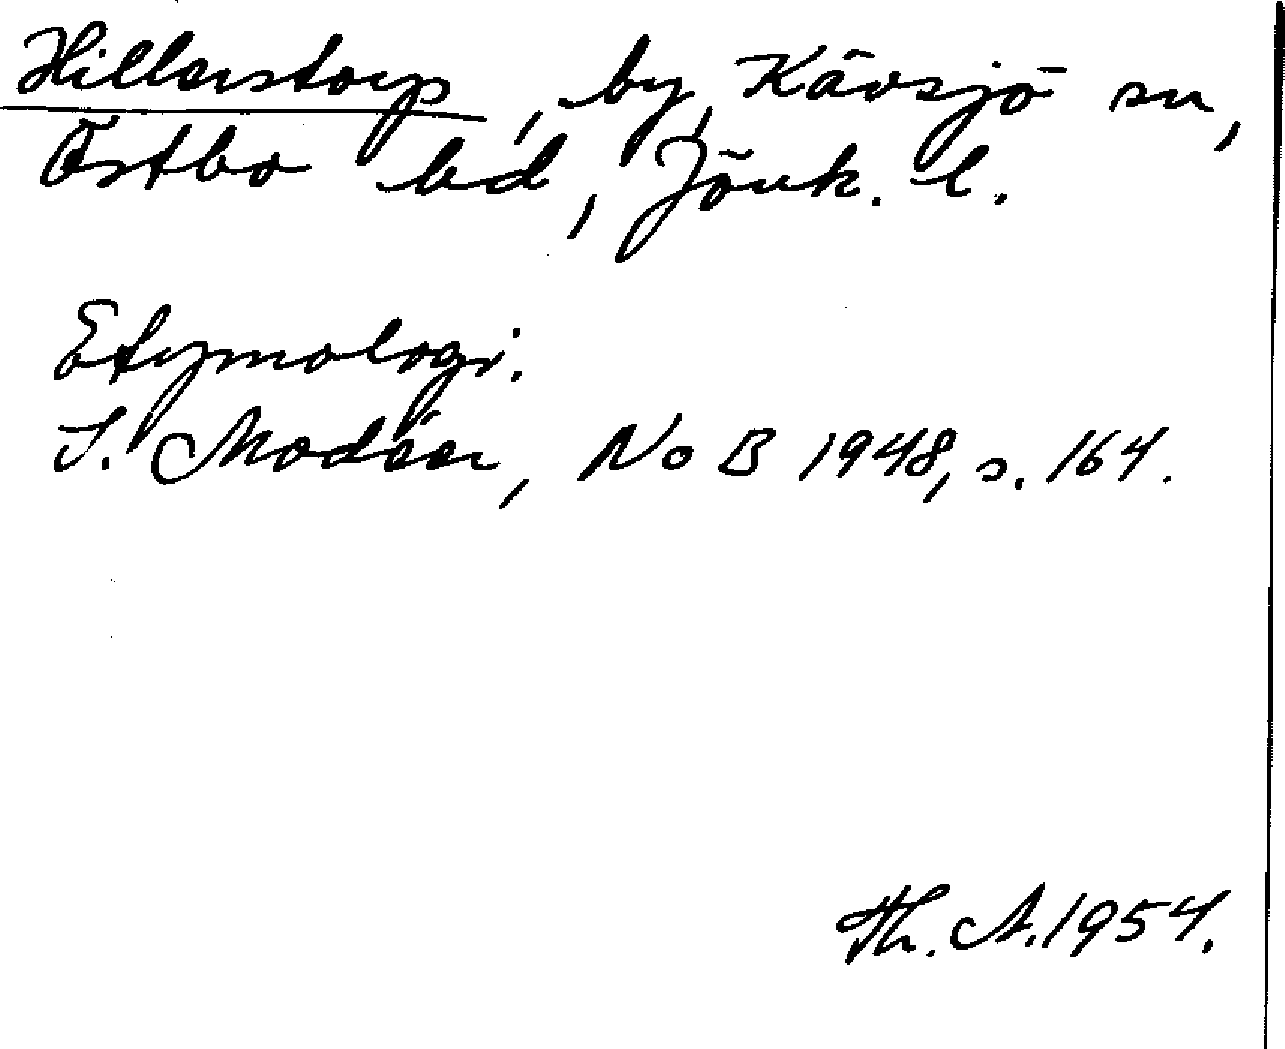 Hillerstorp, by, Kävsjö sn,
Östbo hd, Jönk. l.
Etymologi.
I. Modéer, NoB 1948, s. 164.
Th. A. 1954.